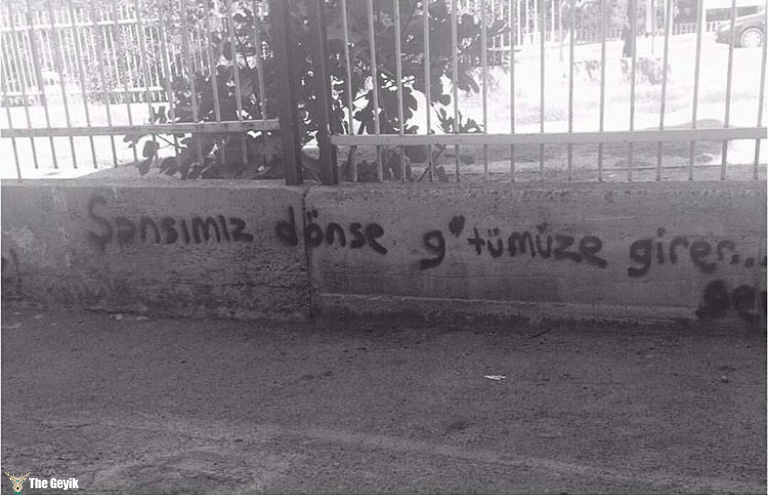 Şansımız dönse g♥tümüze girer...
The Geyik